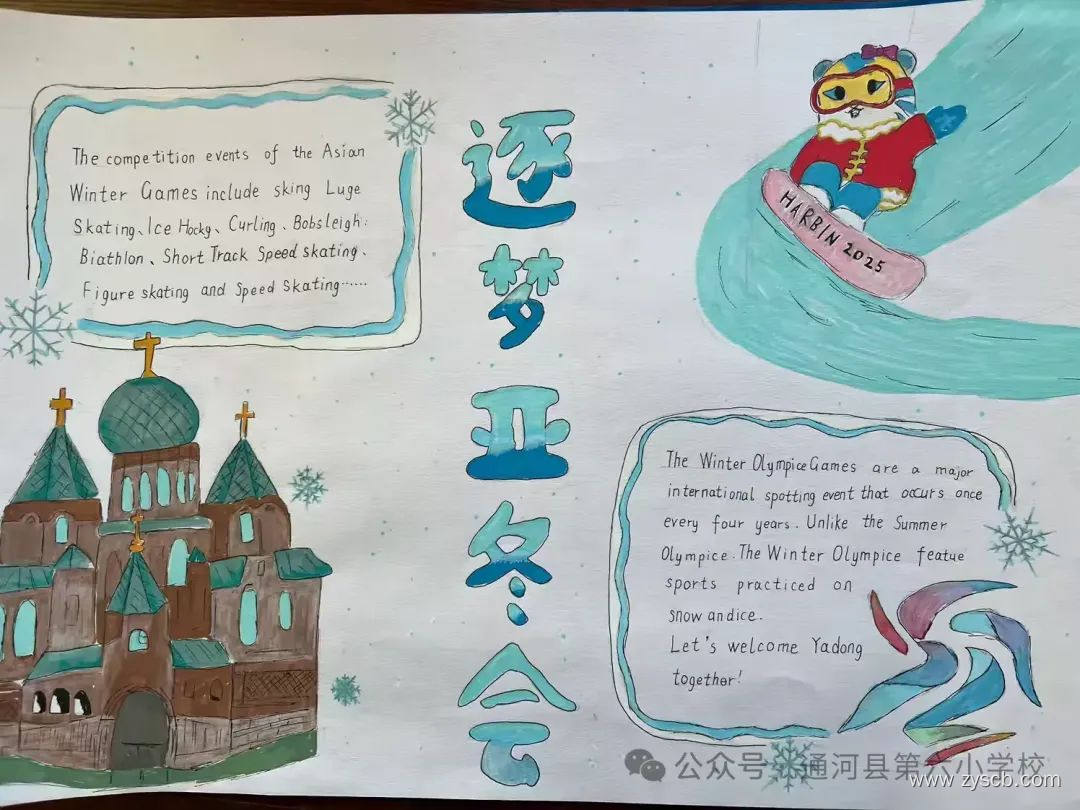 The competition events of the Asian
Winter Games include sking Luge
Skating、Ice Hocky、Curling、Bobsleigh:
Biathlon、Short Track Speed skating、
Figure skating and Speed Skating······
逐梦亚冬会
HARBIN 2025
The Winter Olympice Games are a major
international spotting event that occurs once
every four years. Unlike the Summer
Olympice. The Winter Olympice featue
sports practiced on
snow and ice.
Let's welcome Yadong
together!
公众号 通河县第 小学校
www.zyscb.com